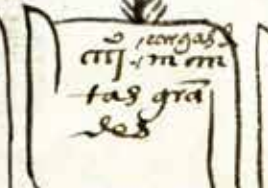 cargas de
iiijº man
tas grã
des